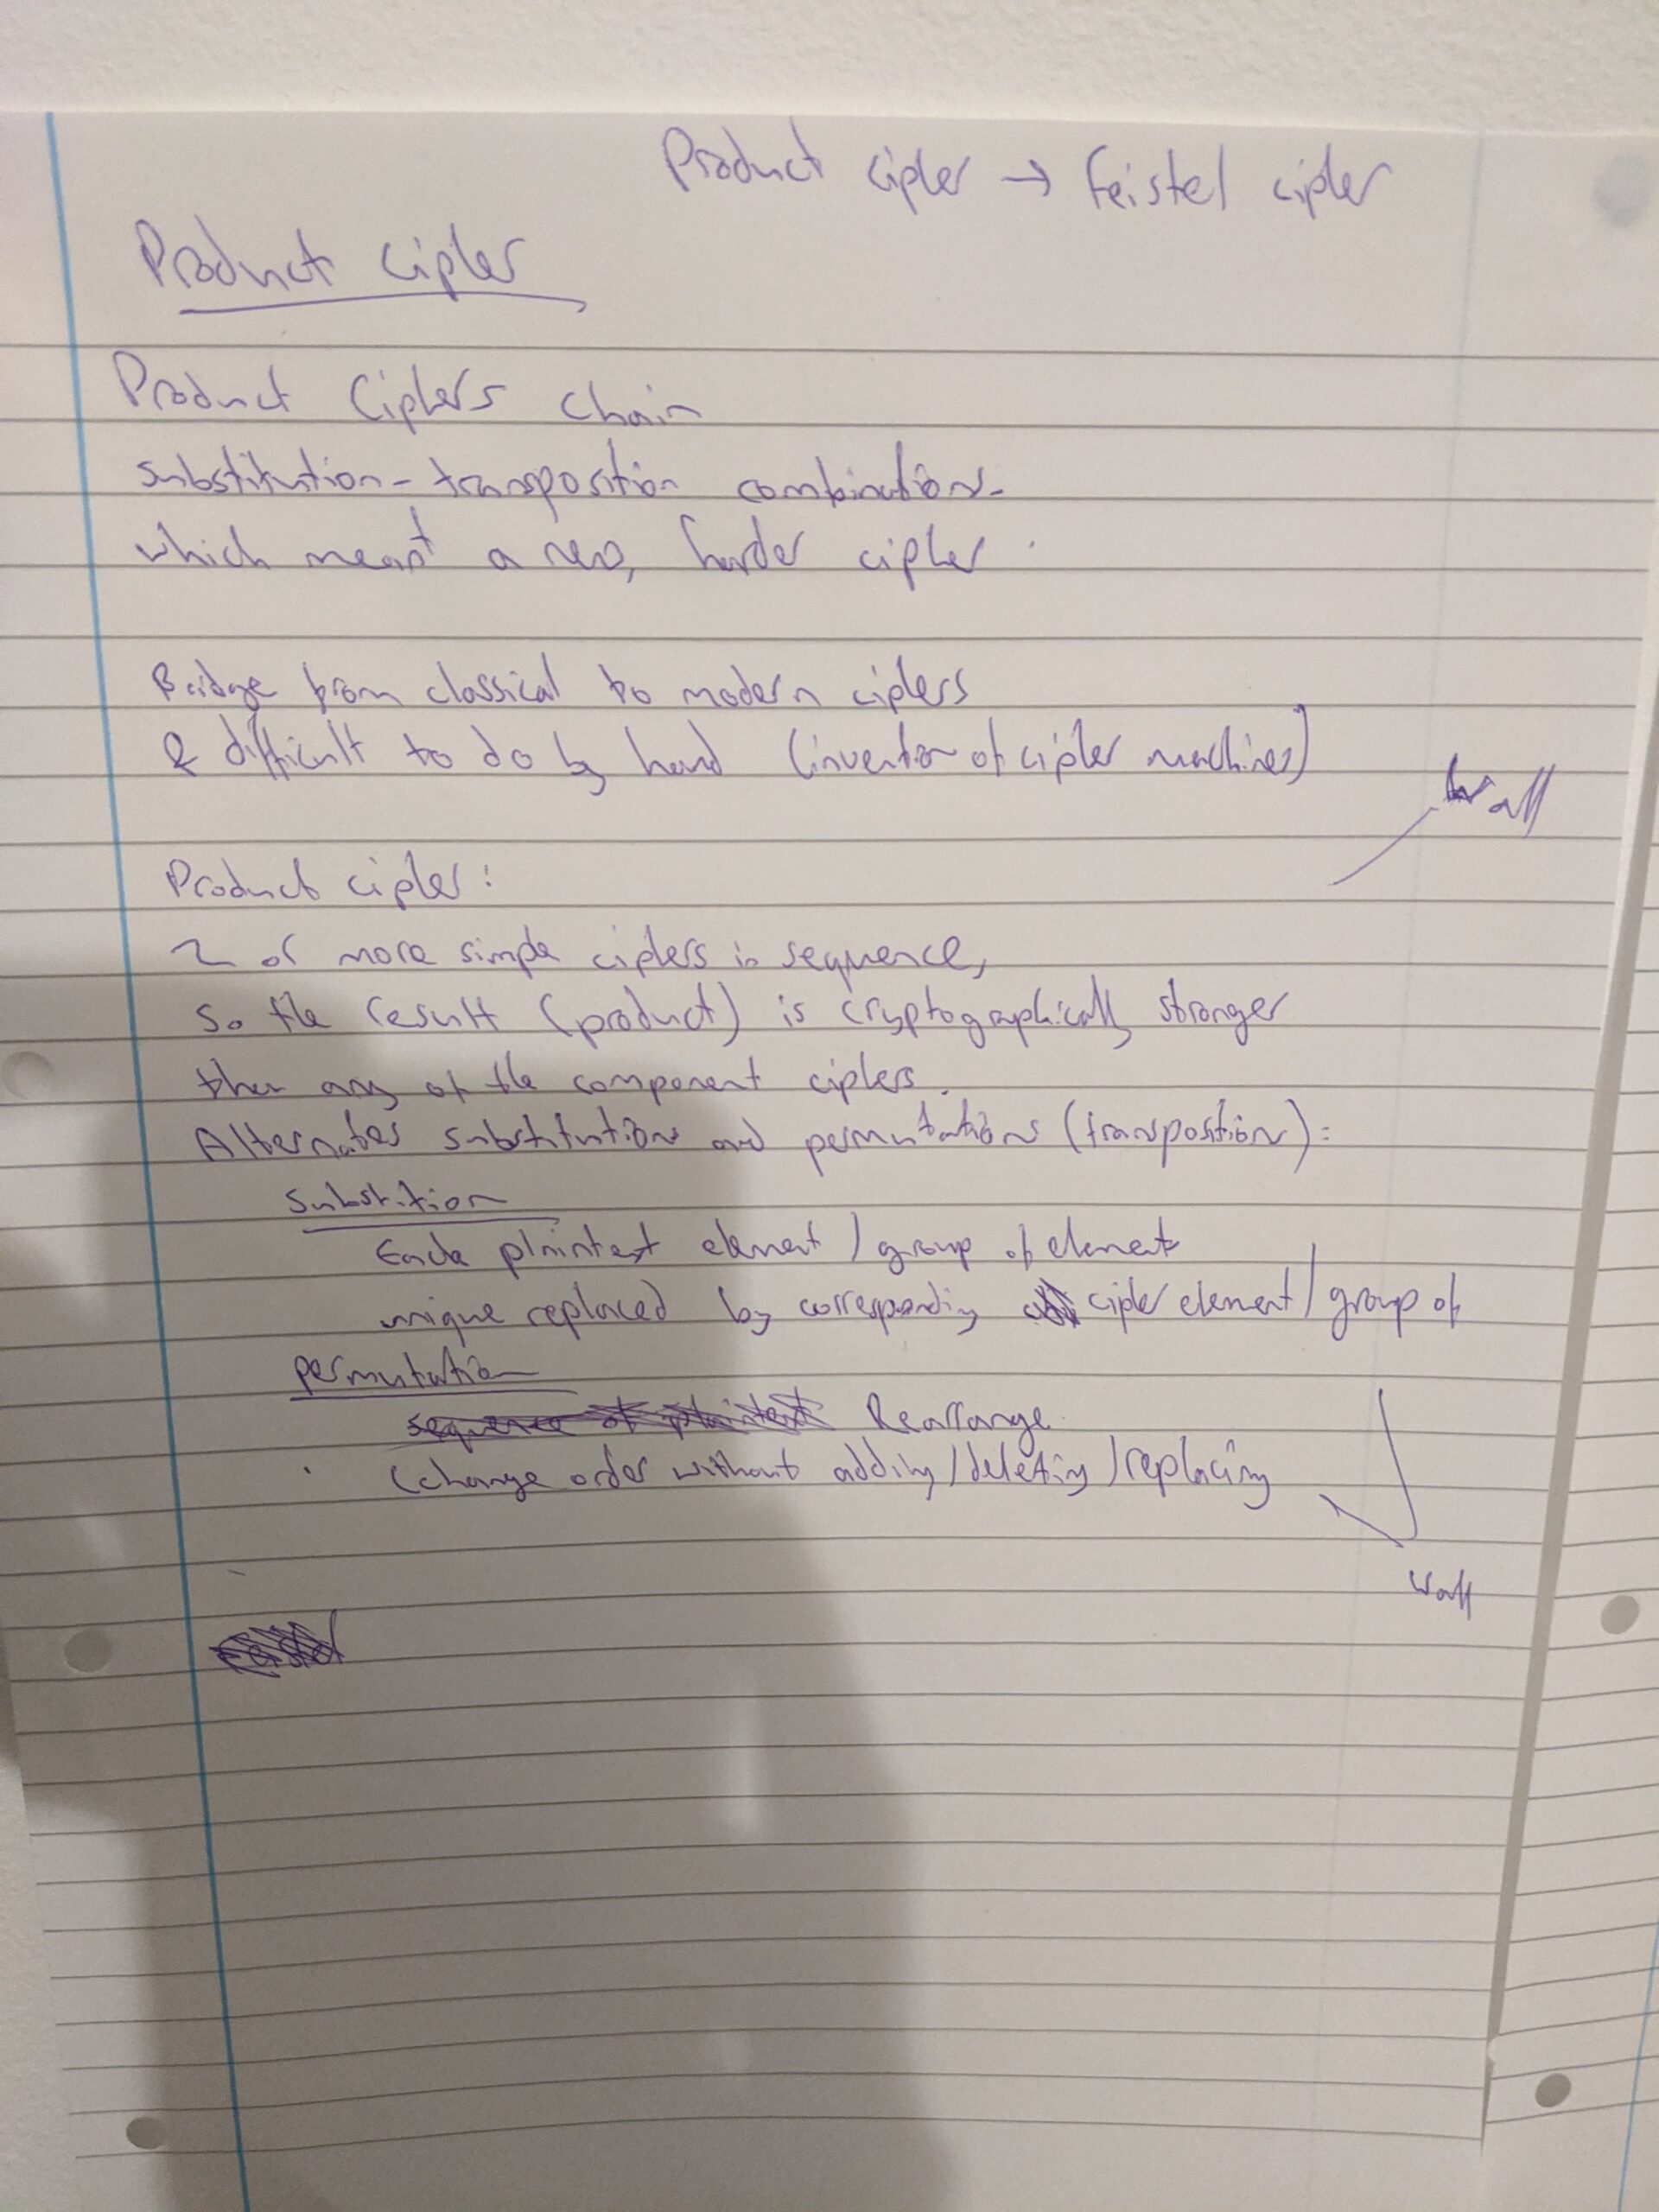 Product cipher → Feistel cipher
Product cipher
Product Ciphers chain
substitution-transposition combinations
which meant a new, harder cipher
Bridge from classical to modern ciphers
& difficult to do by hand (invention of cipher machines)
Wall
Product cipher:
2 or more simple ciphers in sequence,
So the result (product) is cryptographically stronger
then any of the component ciphers.
Alternates substitutions and permutations (transposition):
Substition
Each plaintext element / group of elements
unique replaced by corresponding cipher element / group of
Permutation
sequence of plaintext Rearrange
(change order without adding/deleting/replacing
Wall